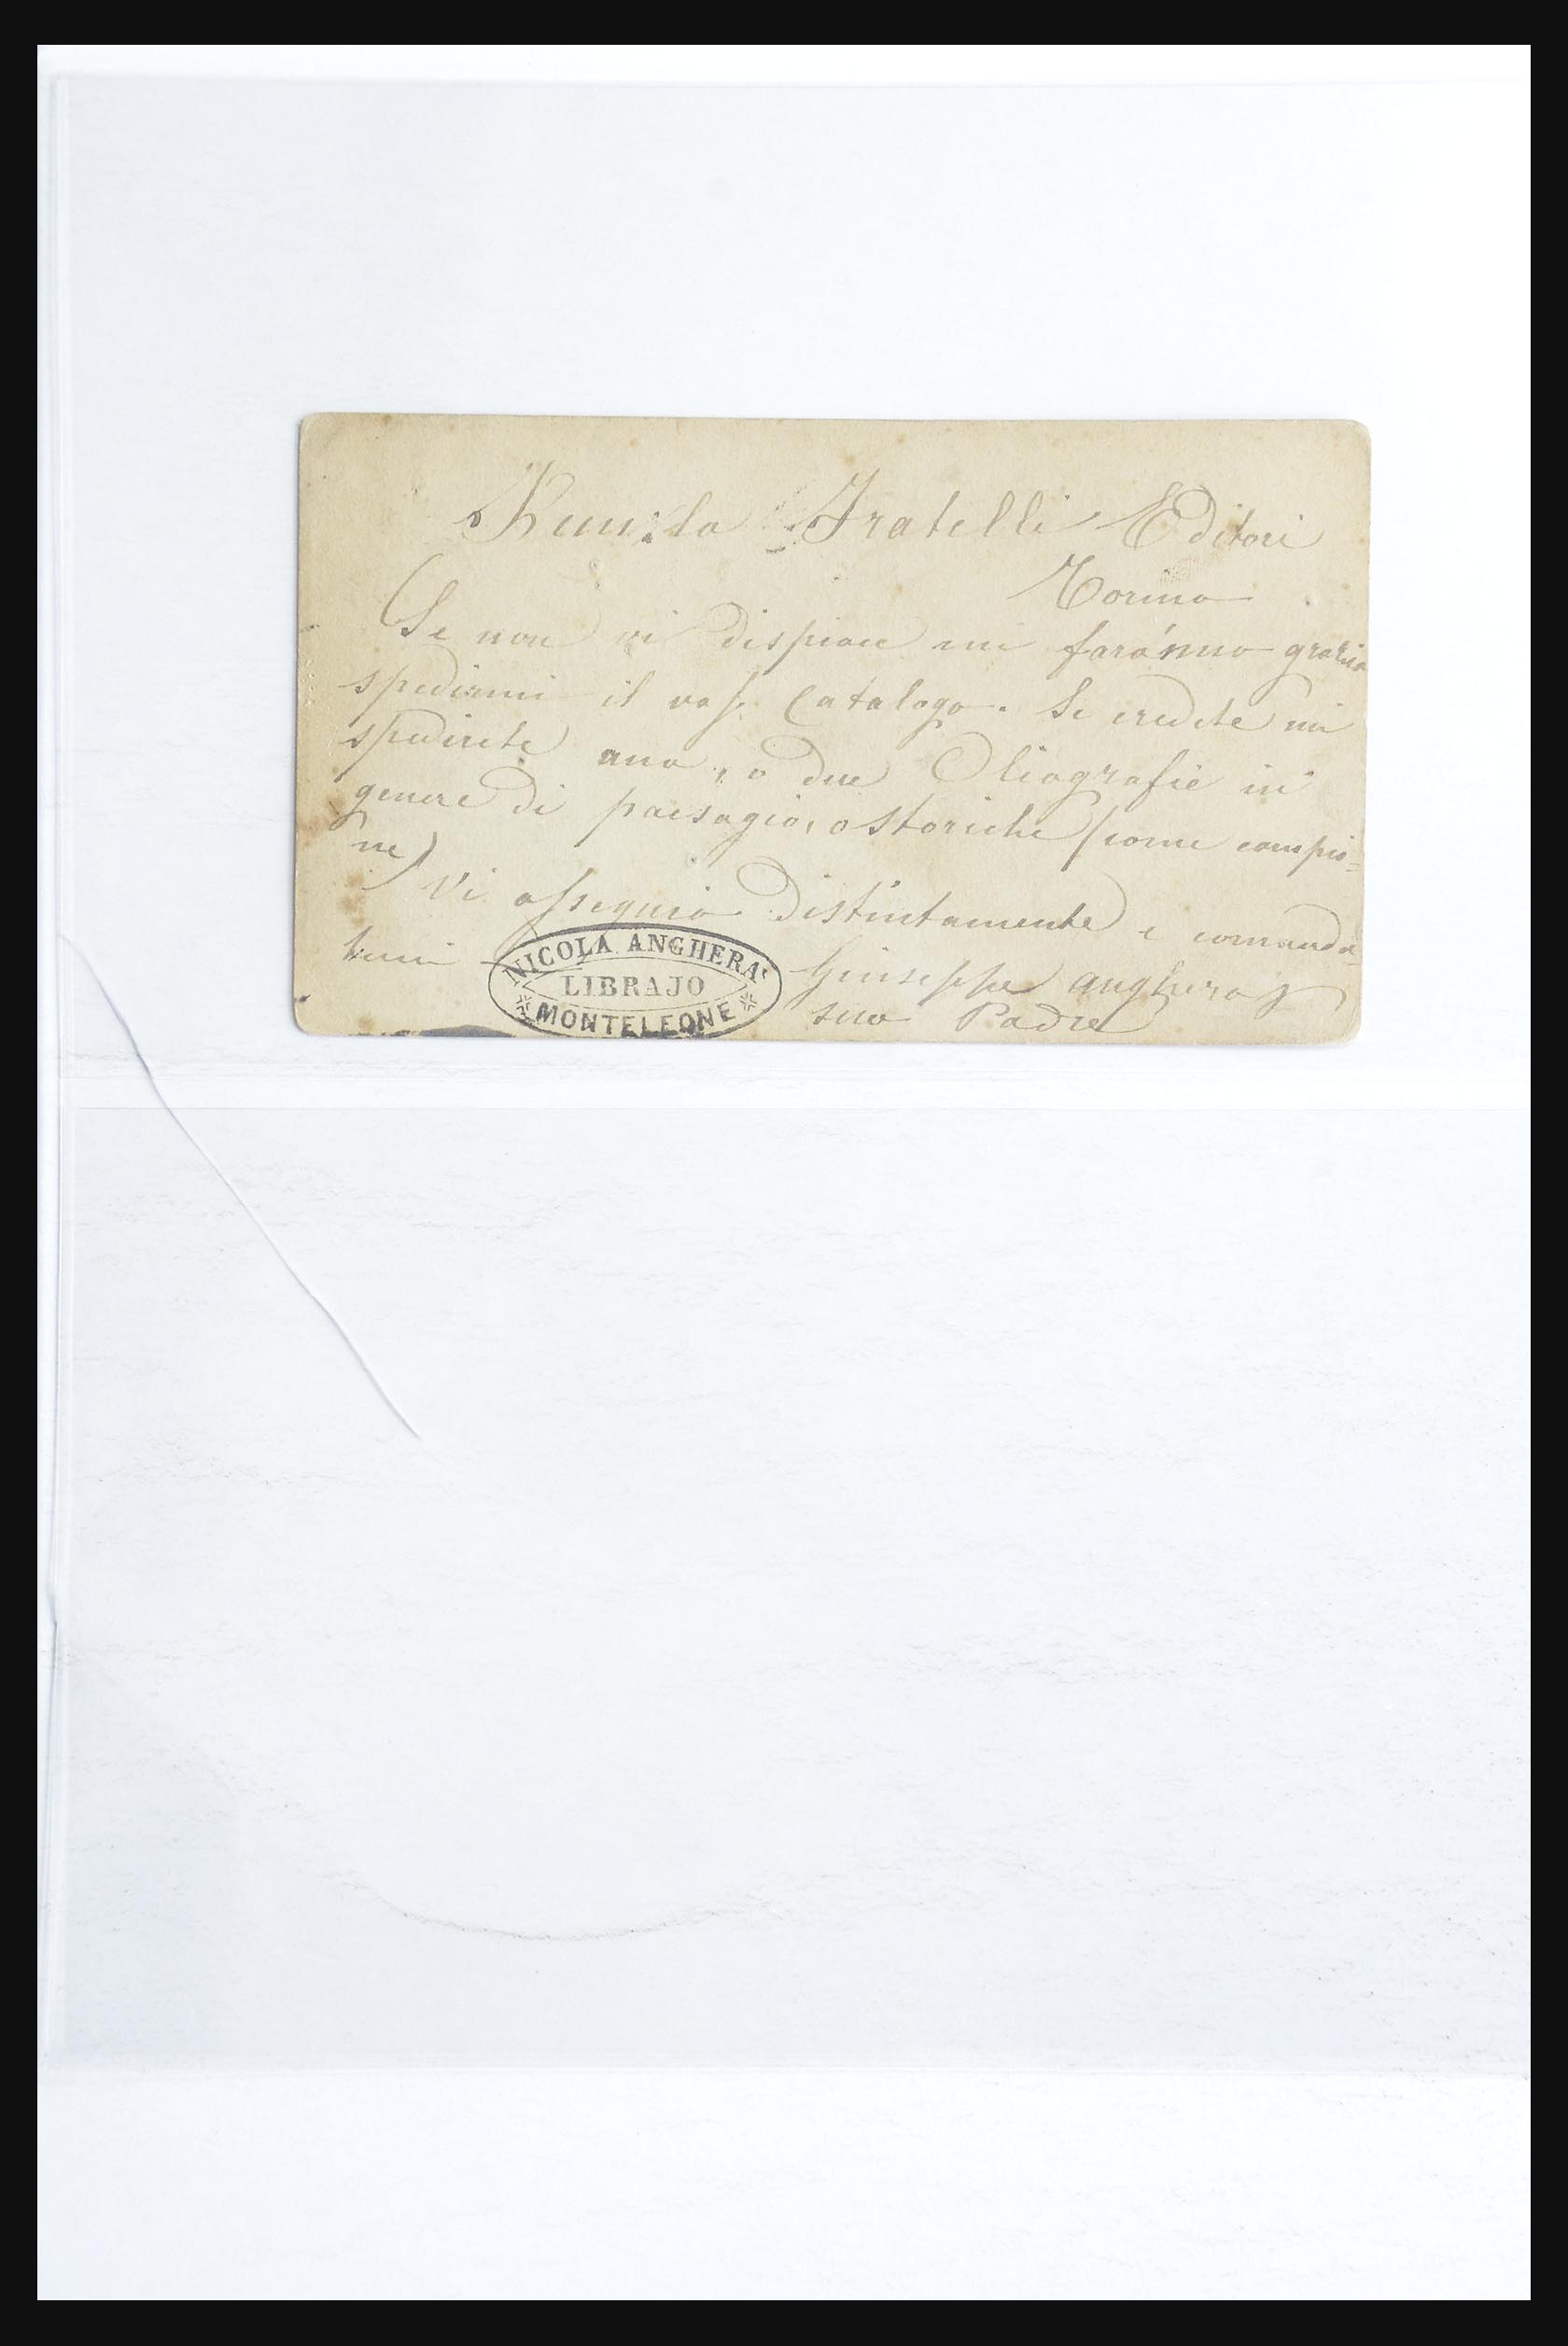 Fratelli Editori
Torino
(Se non vi dispiace mi faránno grazia
spedirmi il vos. Catalogo. Se credete mi
spedirete una, o due Oliografie in
genere di paesagio, o storiche (come campio=
ne)
Vi ossequio distintamente e comanda=
temi
NICOLA ANGHERA'
LIBRAJO
MONTELEONE
Giuseppe Anghera
suo Padre